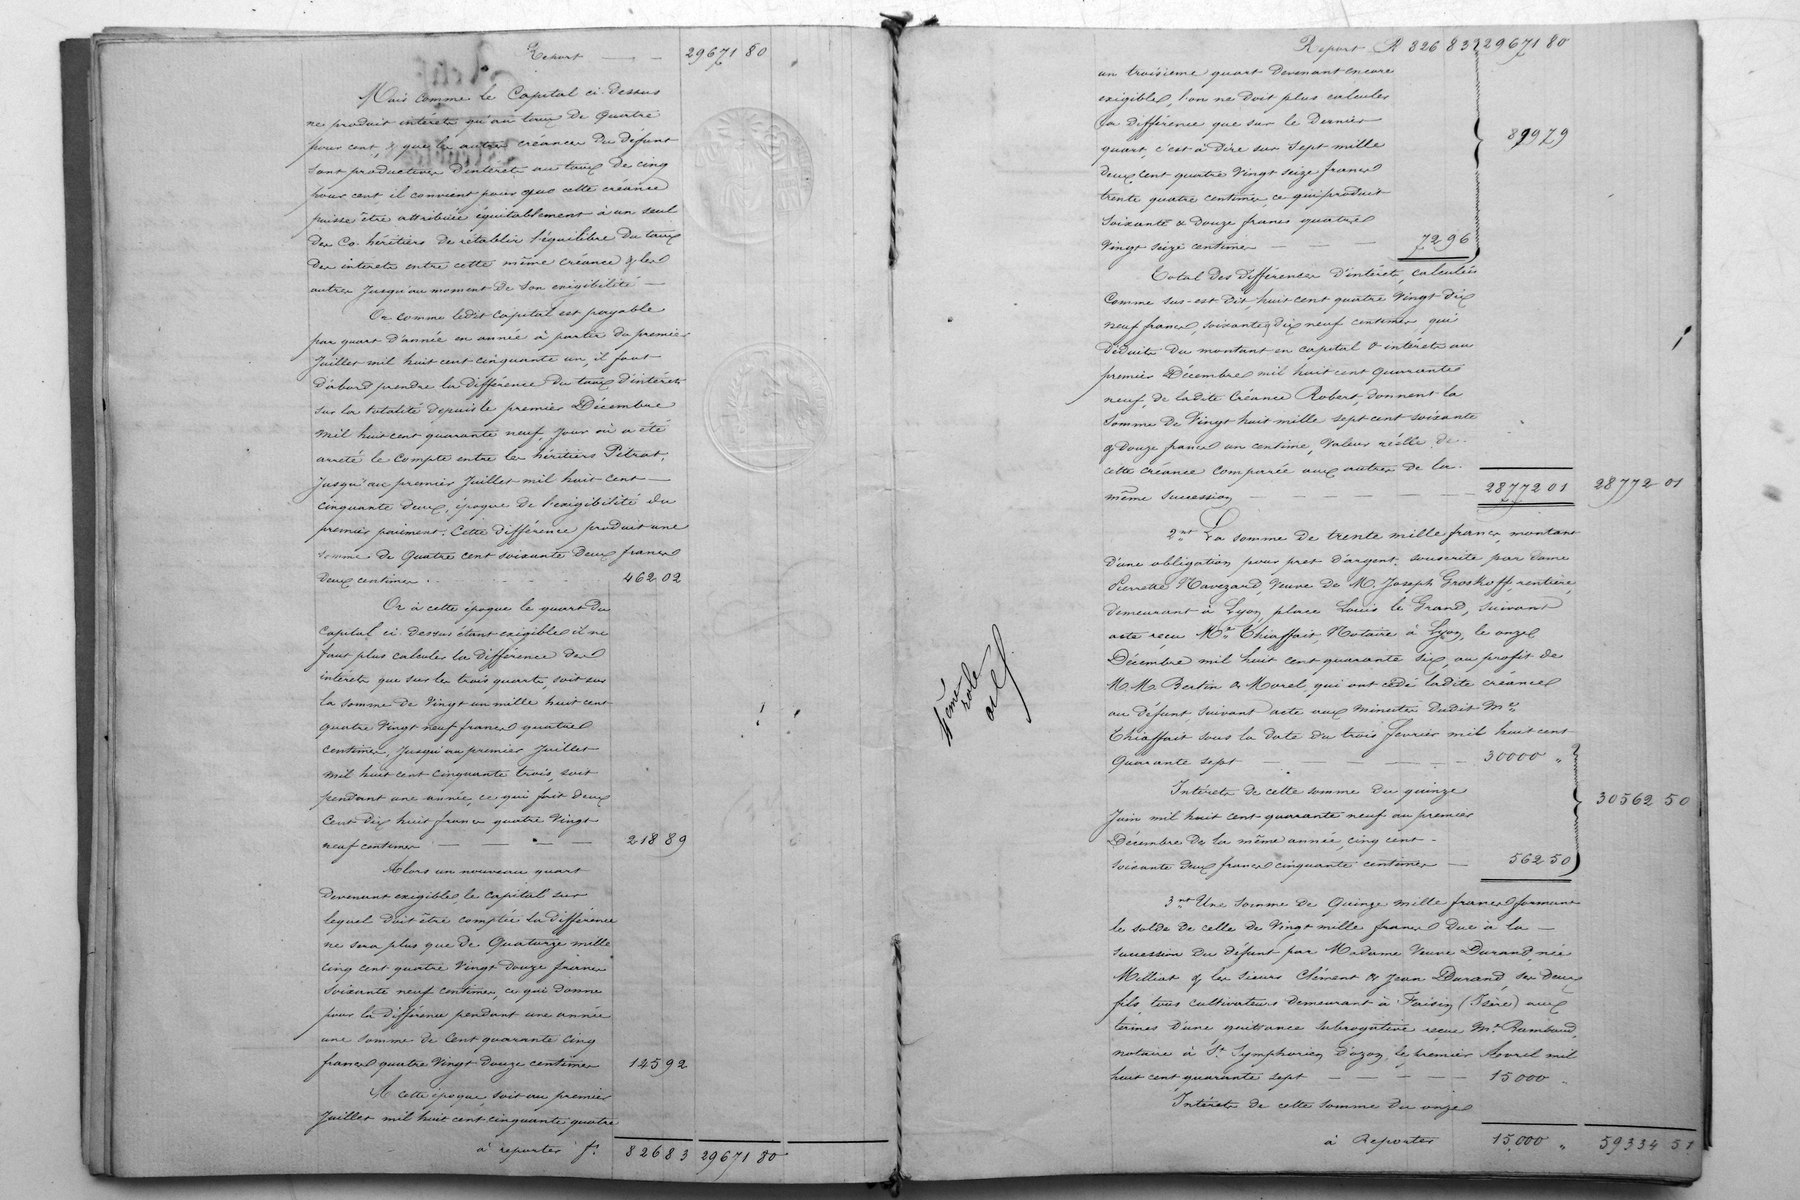 Report — — 29671 80
Mais comme le Capital ci-dessus
ne produit intérêts qu'au taux de quatre
pour cent, & que les autres créances du défunt
sont productives d'intérêts au taux de cinq
pour cent il convient pour que cette créance
puisse être attribuée équitablement à un seul
des Co-héritiers de rétablir l'équilibre du taux
des interets entre cette même créance & les
autres jusqu'au moment de son exigibilité —
Or comme ledit capital est payable
par quart d'année en année à partir du premier
Juillet mil huit cent cinquante un, il faut
d'abord prendre la différence du taux d'intérêts
sur la totalité depuis le premier Décembre
mil huit cent quarante neuf, jour où a été
arreté le compte entre les héritiers Pitrat,
jusqu'au premier Juillet mil huit cent —
cinquante deux, époque de l'exigibilité du
premier paiment. Cette différence produit une
somme de Quatre cent soixante deux francs
deux centimes . - - - 462 02
Or à cette époque le quart du
Capital ci-dessus étant exigible il ne
faut plus calculer la différence des
interets que sur les trois quarts, soit sur
la somme de Vingt un mille huit cent
quatre Vingt neuf francs quatre
centimes, jusqu'au premier Juillet
mil huit cent cinquante trois, soit
pendant une année, ce qui fait deux
Cent dix huit francs quatre Vingt
neuf centimes — — — — 218 89
Alors un nouveau quart
devenant exigible, le capital sur
lequel doit être comptée la différence
ne sera plus que de Quatorze mille
cinq cent quatre Vingt douze francs
soixante neuf centimes, ce qui donne
pour la différence pendant une année
une somme de Cent quarante cinq
francs quatre Vingt douze centimes 145 92
A cette époque, soit au premier
Juillet mil huit cent cinquante quatre
à reporter f. 826 83 29671 80
Report R 826 83 29671 80
un troisieme quart devenant encore
exigible, l'on ne doit plus calculer
la différence que sur le dernier
quart, c'est à dire sur Sept mille
deux cent quatre Vingt seize francs
trente quatre centimes, ce qui produit
Soixante & douze francs quatre
Vingt seize centimes — — — 72 96
899 79
Total des différences d'intérêts, calculées
Comme sus-est dit, huit cent quatre Vingt dix
neuf francs, soixante & dix neuf centimes, qui
déduits du montant en capital & intérêts au
premier Décembre mil huit cent quarante
neuf, de ladite Créance Robert, donnent la
somme de Vingt huit mille sept cent soixante
& douze francs un centime, valeur réelle de
cette créance comparée aux autres de la
même succession — — — — 28772 01 28772 01
2nt La somme de trente mille francs, montant
d'une obligation pour pret d'argent, souscrite par dame
Pierrette Navizard, Veuve de M. Joseph Groskoff, rentière,
demeurant à Lyon place Louis le Grand, suivant
acte reçu Me Thiaffait, Notaire à Lyon, le onze
Décembre mil huit cent quarante six, au profit de
M.M. Bertin & Morel, qui ont cédé ladite créance
au défunt suivant acte aux minutes dudit Me
Thiaffait sous la date du trois février mil huit cent
quarante sept — — — — — 30000 "
Intérêts de cette somme du quinze
Juin mil huit cent quarante neuf au premier
Décembre de la même année, cinq cent -
soixante deux francs cinquante centimes — 562 50
30562 50
3nt Une somme de Quinze mille francs formant
le solde de celle de Vingt mille francs due à la —
succession du défunt par Madame Veuve Durand, née
Milliat & les sieurs Clément & Jean Durand, ses deux
fils, tous cultivateurs demeurant à Feisin (Isère) aux
termes d'une quittance subrogative reçue Me Rambaud,
notaire à St Symphorien d'ozon, le premier Avril mil
huit cent quarante sept — — — — 15,000 "
Intérêts de cette somme du onze
à Reporter 15,000 " 59334 51
rôle